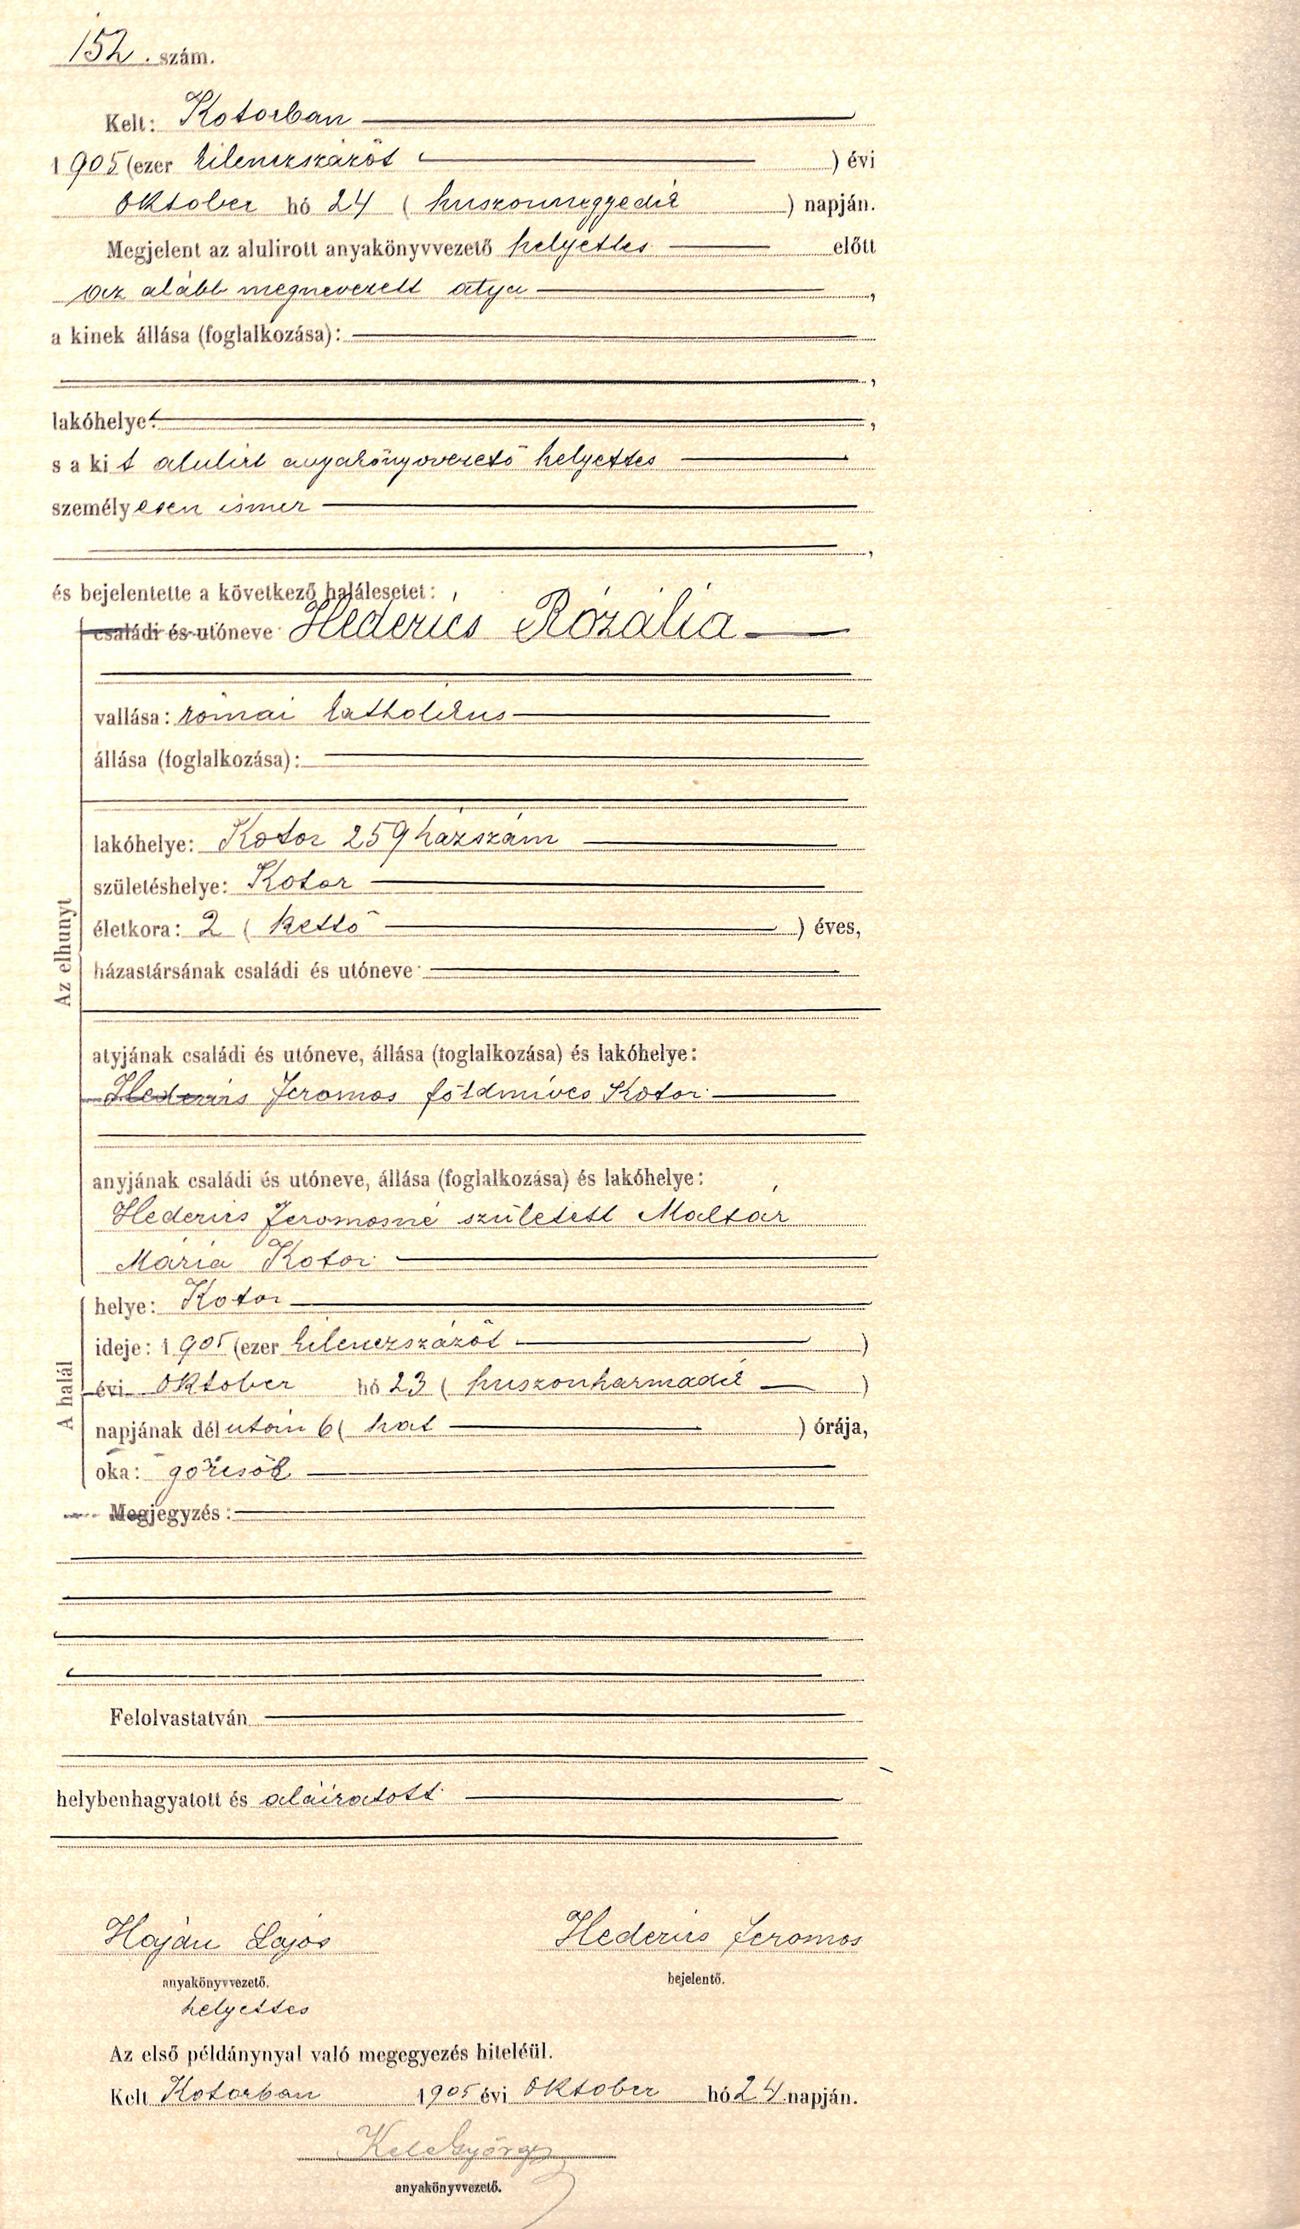 152. szám.
Kelt: Kotorban
1905 (ezer kilenczszázöt ) évi
Oktober hó 24 ( huszonnegyedik ) napján.
Megjelent az alulirott anyakönyvvezető helyettes előtt
az alább megnevezett atya ,
a kinek állása (foglalkozása):
,
lakóhelye: ,
s a kit alulirt anyakönyvvezető helyettes
személyesen ismer
,
és bejelentette a következő halálesetet:
Az elhunyt
családi és utóneve Hederics Rózália
vallása: római katholikus
állása (foglalkozása):
lakóhelye: Kotor 259 házszám
születéshelye: Kotor
életkora: 2 ( kettő ) éves,
házastársának családi és utóneve:
atyjának családi és utóneve, állása (foglalkozása) és lakóhelye:
Hederics Jeromos földmíves Kotor
anyjának családi és utóneve, állása (foglalkozása) és lakóhelye:
Hederics Jeromosné született Maltár
Mária Kotor
A halál
helye: Kotor
ideje: 1905 (ezer kilenczszázöt )
évi Oktober hó 23 ( huszonharmadik )
napjának délután 6 ( hat ) órája,
oka: görcsök
Megjegyzés:
Felolvastatván
helybenhagyatott és aláíratott.
Haján Lajos Hederics Jeromos
anyakönyvvezető. bejelentő.
helyettes
Az első példánynyal való megegyezés hiteléül.
Kelt Kotorban 1905 évi Oktober hó 24 napján.
György
anyakönyvvezető.